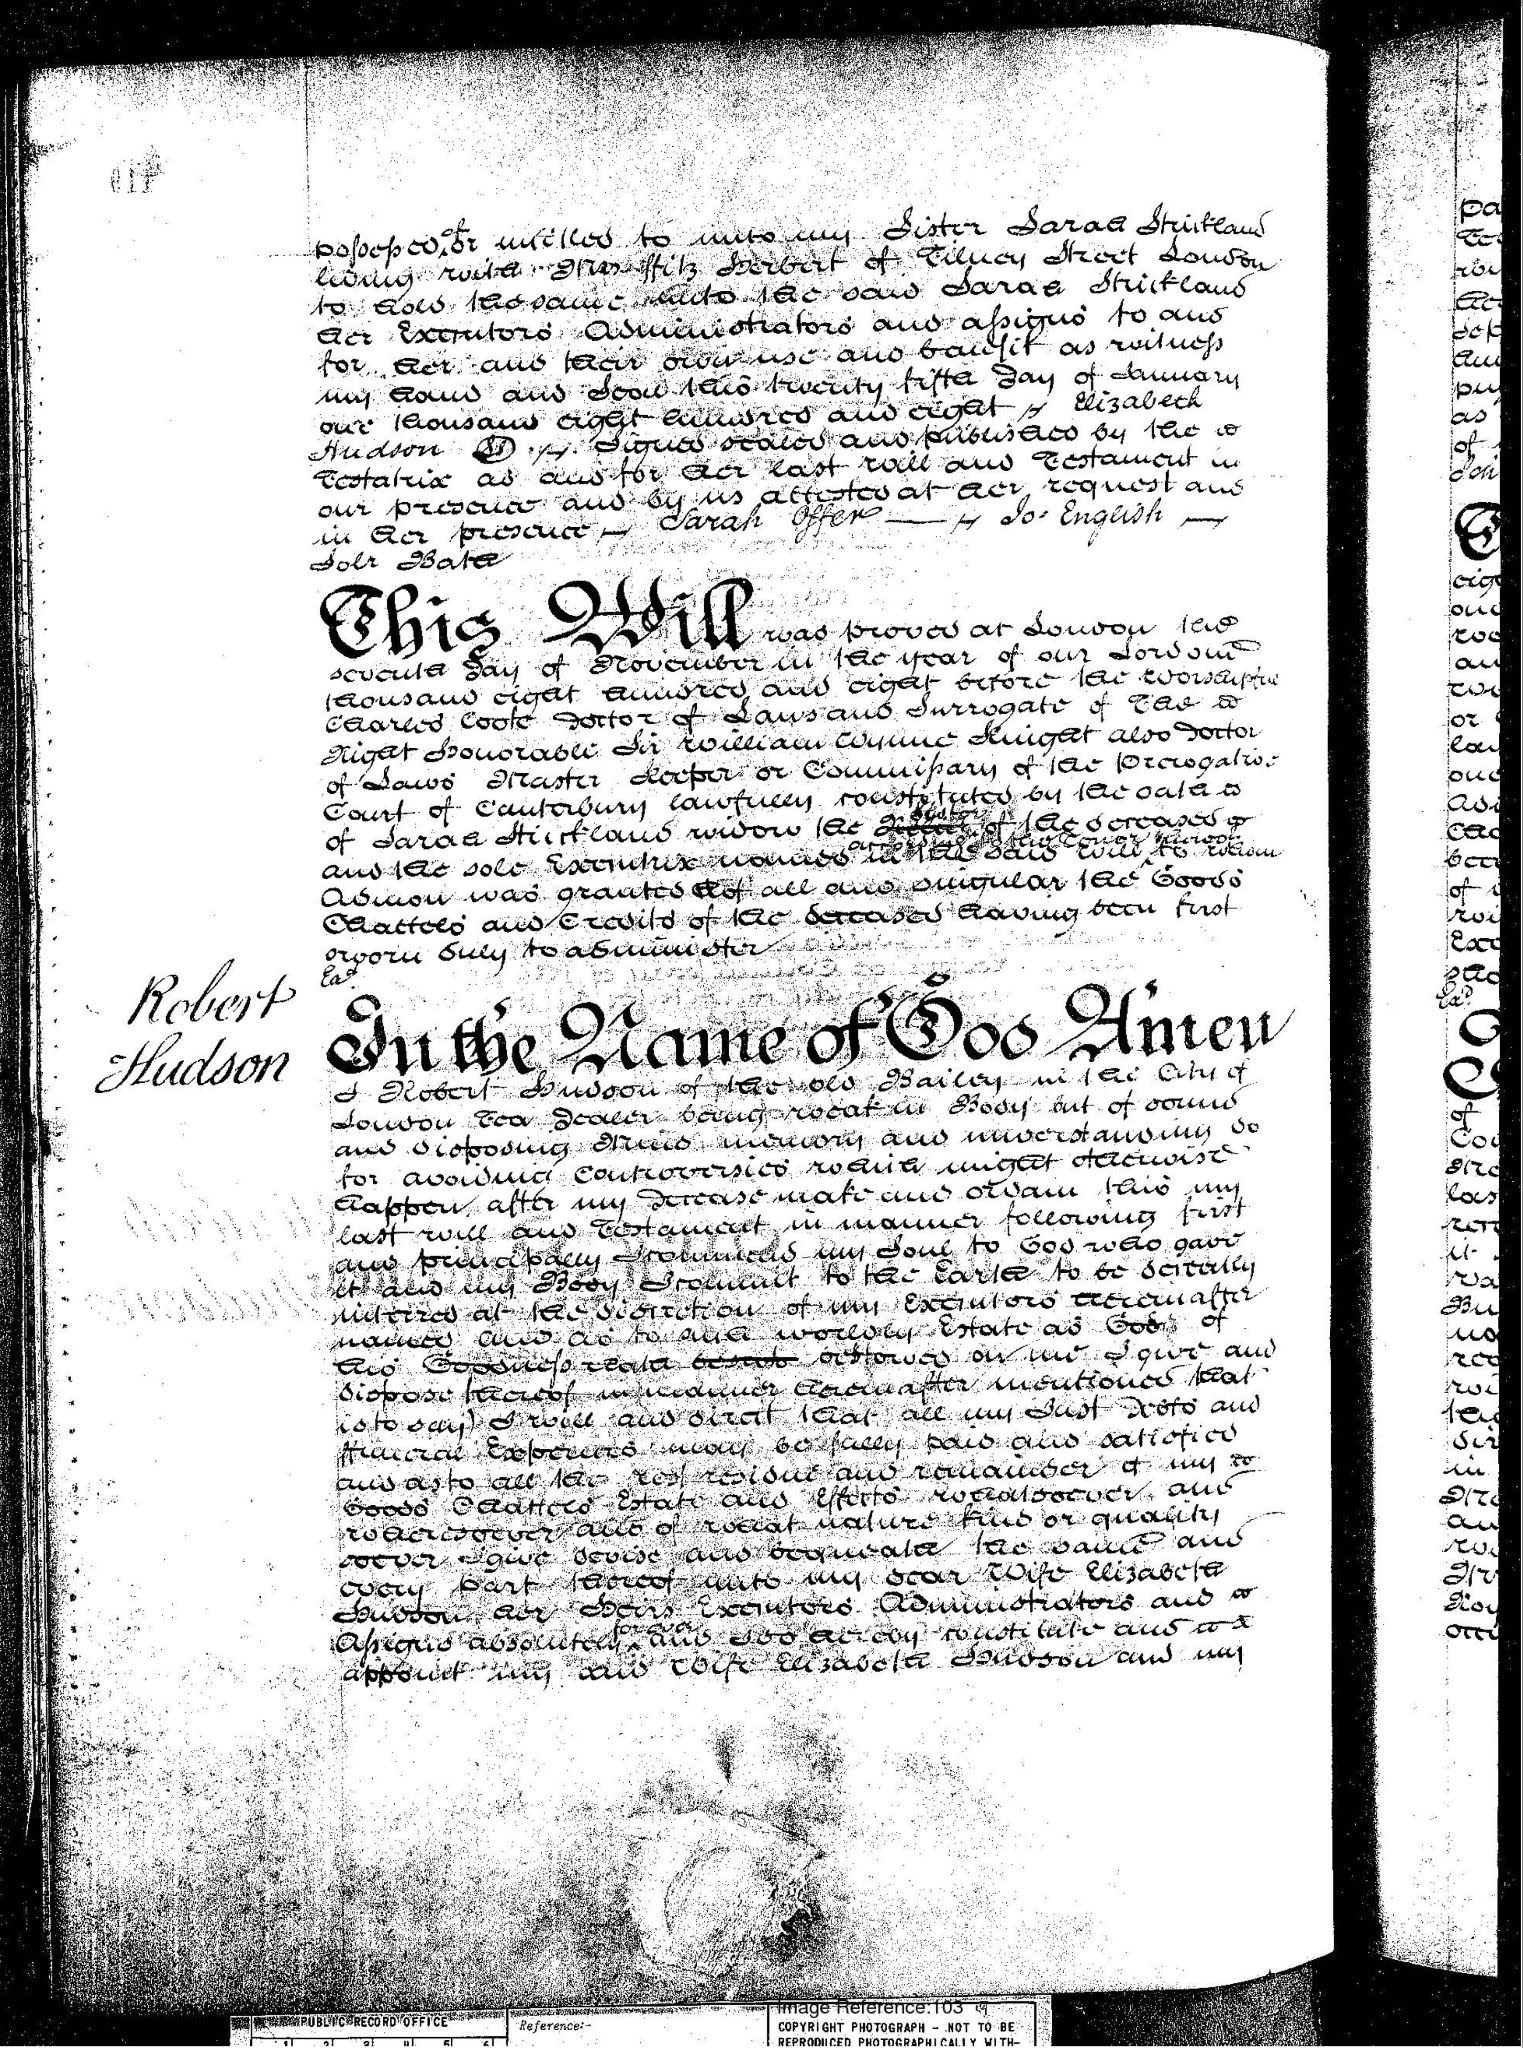 possessed of or intitled to unto my Sister Sarah Strickland
living with Mrs ffitz Herbert of Tilney Street London
to hold the same unto the said Sarah Strickland
her Executors Administrators and assigns to and
for her and their own use and benefit as witness
my hand and Seal this twenty fifth day of January
one thousand eight hundred and eight Elizabeth
Hudson Signed sealed and published by the
Testatrix as and for her last will and Testament in
our presence and by us attested at her request and
in her presence Sarah Offer Jos. English
Solr Bath
This Will was proved at London the
seventh day of November in the year of our Lord one
thousand eight hundred and eight before the Worshipful
Charles Coote Doctor of Laws and Surrogate of The
Right Honorable Sir William Wynne Knight also Doctor
of Laws Master Keeper or Commissary of the Prerogative
Court of Canterbury lawfully constituted by the oath
of Sarah Strickland widow the Sister of the deceased
and the sole Executrix named in the said will to whom
Admon was granted of all and singular the Goods
Chattels and Credits of the deceased having been first
sworn duly to administer
Exd.
Robert
Hudson
In the Name of God Amen
I Robert Hudson of the old Bailey in the City of
London Tea Dealer being weak in Body but of sound
and disposing Mind memory and understanding do
for avoiding Controversies which might otherwise
happen after my decease make and ordain this my
last will and Testament in manner following first
and principally I commend my Soul to God who gave
it and my Body I commit to the Earth to be decently
interred at the discretion of my Executors hereinafter
named and as to such worldly Estate as God of
his Goodness hath bestowed on me I give and
dispose thereof in manner hereinafter mentioned that
is to say) I will and direct that all my Just Debts and
ffuneral Expences may be fully paid and satisfied
and as to all the rest residue and remainder of my
Goods Chattels Estate and Effects whatsoever and
wheresoever and of what nature kind or quality
soever I give devise and bequeath the same and
every part thereof unto my dear Wife Elizabeth
Hudson her Heirs Executors Administrators and
Assigns absolutely for ever and I do hereby constitute and
appoint my said Wife Elizabeth Hudson and my
PUBLIC RECORD OFFICE
Reference:-
Image Reference:103
COPYRIGHT PHOTOGRAPH - NOT TO BE
REPRODUCED PHOTOGRAPHICALLY WITH-